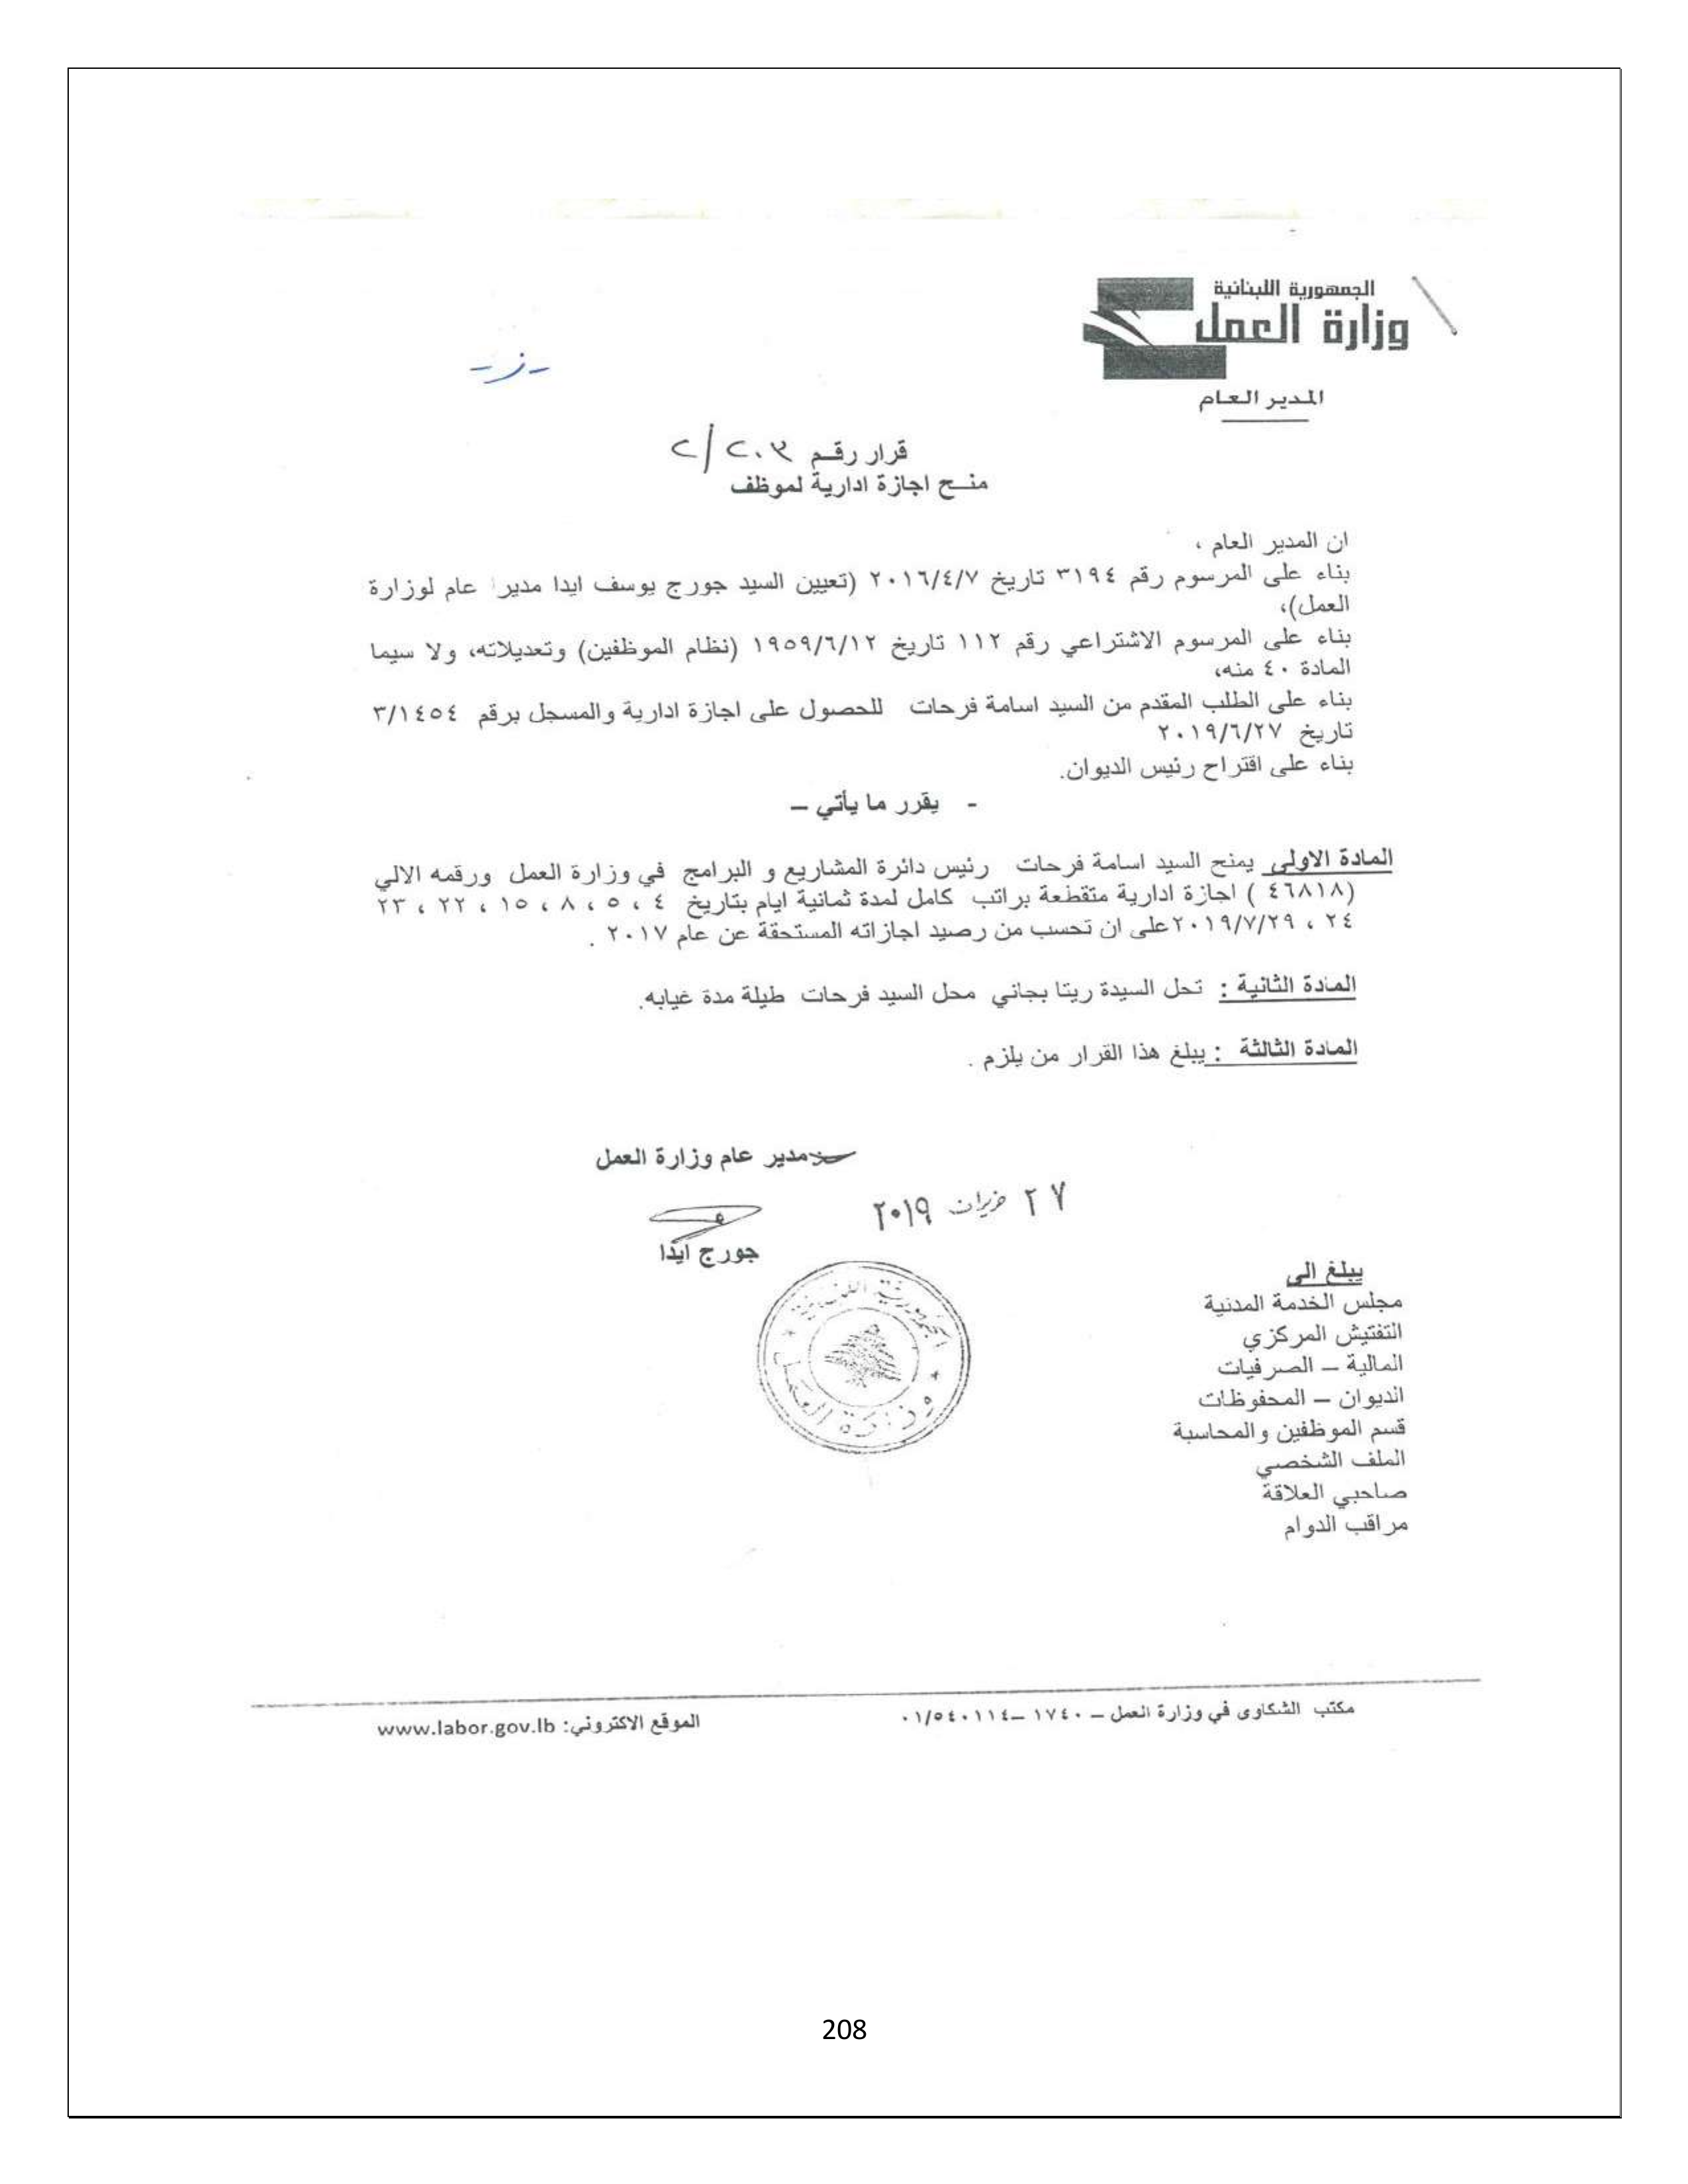 الجمهورية اللبنانية
وزارة العمل
المدير العام
قرار رقم ٢/٢٠٣
منح اجازة ادارية لموظف
ان المدير العام ،
بناء على المرسوم رقم ٣١٩٤ تاريخ ٢٠١٦/٤/٧ (تعيين السيد جورج يوسف ايدا مديرا عام لوزارة
العمل)،
بناء على المرسوم الاشتراعي رقم ١١٢ تاريخ ١٩٥٩/٦/١٢ (نظام الموظفين) وتعديلاته، ولا سيما
المادة ٤٠ منه،
بناء على الطلب المقدم من السيد اسامة فرحات للحصول على اجازة ادارية والمسجل برقم ٣/١٤٥٤
تاريخ ٢٠١٩/٦/٢٧
بناء على اقتراح رئيس الديوان.
- يقرر ما يأتي –
المادة الاولى يمنح السيد اسامة فرحات رئيس دائرة المشاريع و البرامج في وزارة العمل ورقمه الالي
(٤٦٨١٨ ) اجازة ادارية متقطعة براتب كامل لمدة ثمانية ايام بتاريخ ٤ ، ٥ ، ٨ ، ١٥ ، ٢٢ ، ٢٣
٢٤ ، ٢٠١٩/٧/٢٩ على ان تحسب من رصيد اجازاته المستحقة عن عام ٢٠١٧ .
المادة الثانية : تحل السيدة ريتا بجاني محل السيد فرحات طيلة مدة غيابه.
المادة الثالثة : يبلغ هذا القرار من يلزم .
مدير عام وزارة العمل
٢٧ حزيران ٢٠١٩
جورج ايدا
الجمهورية اللبنانية
وزارة العمل
يبلغ الى
مجلس الخدمة المدنية
التفتيش المركزي
المالية – الصرفيات
الديوان – المحفوظات
قسم الموظفين والمحاسبة
الملف الشخصي
صاحبي العلاقة
مراقب الدوام
مكتب الشكاوى في وزارة العمل – ١٧٤٠ – ٠١/٥٤٠١١٤
الموقع الاكتروني: www.labor.gov.lb
208